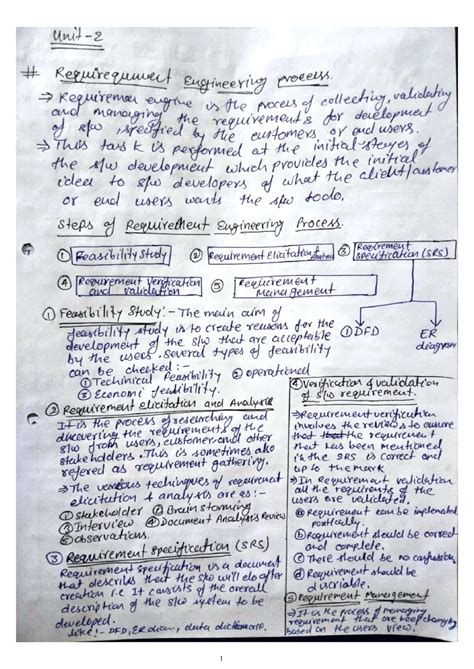 Unit-2
# Requirequment Engineering process.
→ Requiremen engine is the process of collecting, validating
and managing the requirements for development
of s/w, specified by the customers or end users.
→ This task is performed at the initial stages of
the s/w development which provides the initial
idea to s/w developers of what the client/customer
or end users wants the s/w to do.
Steps of Requirement Engineering Process.
① Feasibility Study
② Requirement Elicitation &
③ Requirement
specification (SRS)
④ Requirement Verification
and validation
⑤ Requirement
Management
① DFD
② ER
diagram
① Feasibility Study:- The main aim of
feasibility study is to create reasons for the
development of the s/w that are acceptable
by the users. Several types of feasibility
can be checked:-
① Techinical Feasibility ② operational
③ Economic feasibility.
② Requirement elicitation and Analysis
It is the process of researching and
discovering the requirements of the
s/w from users, customer and other
stakeholders. This is sometimes also
refered as requirement gathering.
→ The various techniques of requirement
elicitation & analysis are as:-
① Stakeholder ② Brain Storming
③ Interview ④ Document Analysis Review
⑤ observations.
③ Requirement Specification (SRS)
Requirement Specification is a document
that describes that the s/w will do after
creation i.e It consists of the overall
description of the s/w system to be
developed.
like:- DFD, ER dian, data
④ Verification & validation
of S/w requirement.
→ Requirement verification
involves the reviews to assure
that the requirement
that has been mentioned
in the SRS is correct and
up to the mark
→ In Requirement validation
all the requirements of the
users are validated.
ⓐ Requirement can be implemented
practically.
ⓑ Requirement should be correct
and complete.
ⓒ There should be no confusion.
ⓓ Requirement should be
⑤ Requirement Management
→ It is the process of managing
requirement that are keep changing
based on the users view.
1